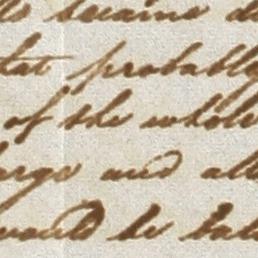 became
that probably
of the whole
large and all
would be